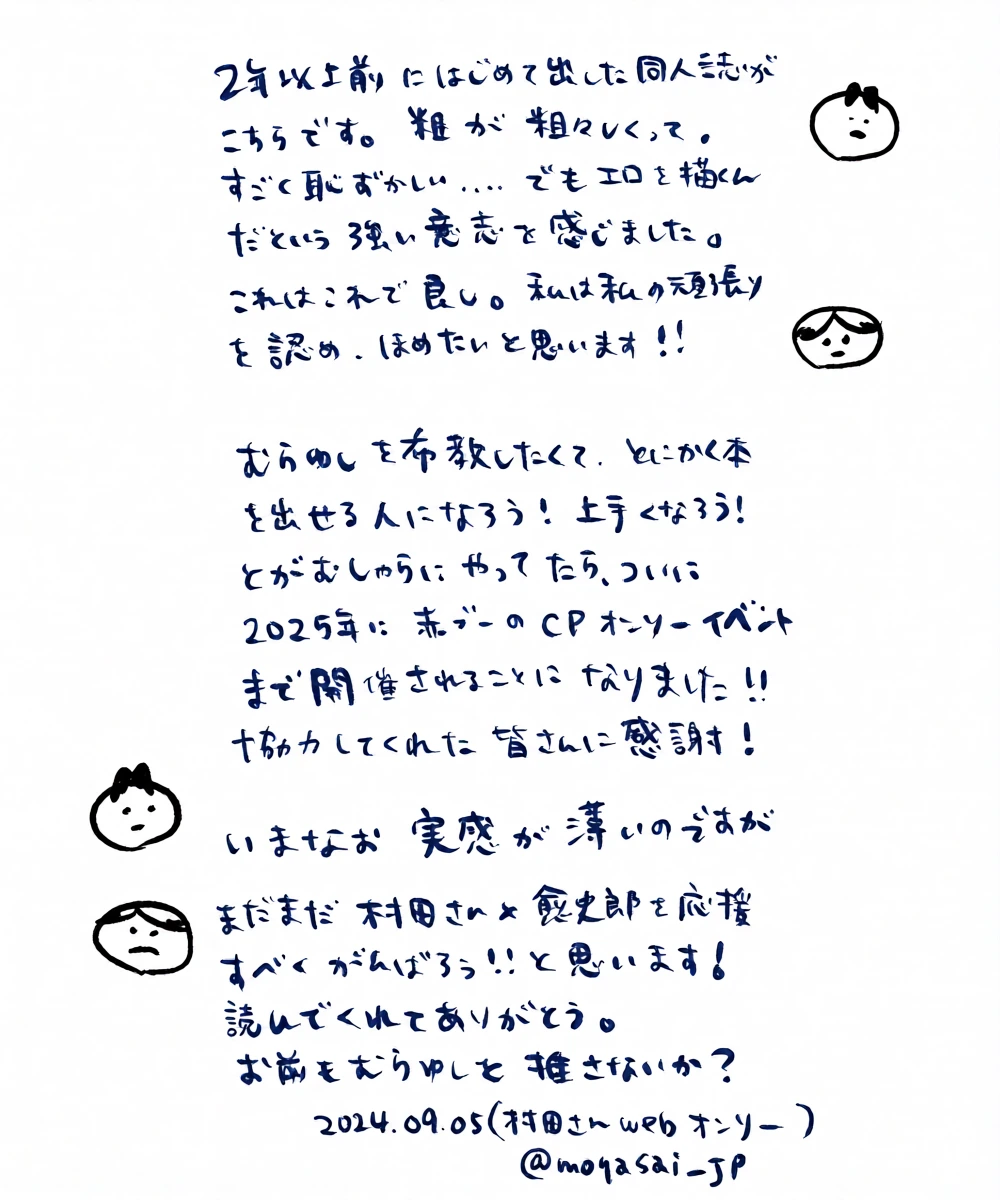 2年以上前にはじめて出した同人誌が
こちらです。粗が粗々しくって。
すごく恥ずかしい....でもエロを描くん
だという強い意志を感じました。
これはこれで良し。私は私の頑張り
を認め、ほめたいと思います!!
むらゆしを布教したくて、とにかく本
を出せる人になろう!上手くなろう!
とがむしゃらにやってたら、ついに
2025年に赤ブーのCPオンリーイベント
まで開催されることになりました!!
協力してくれた皆さんに感謝!
いまなお実感が薄いのですが
まだまだ村田さんと 史郎を応援
すべくがんばろう!!と思います!
読んでくれてありがとう。
お前もむらゆしを推さないか?
2024.09.05(村田さんwebオンリー)
@moyasai_JP